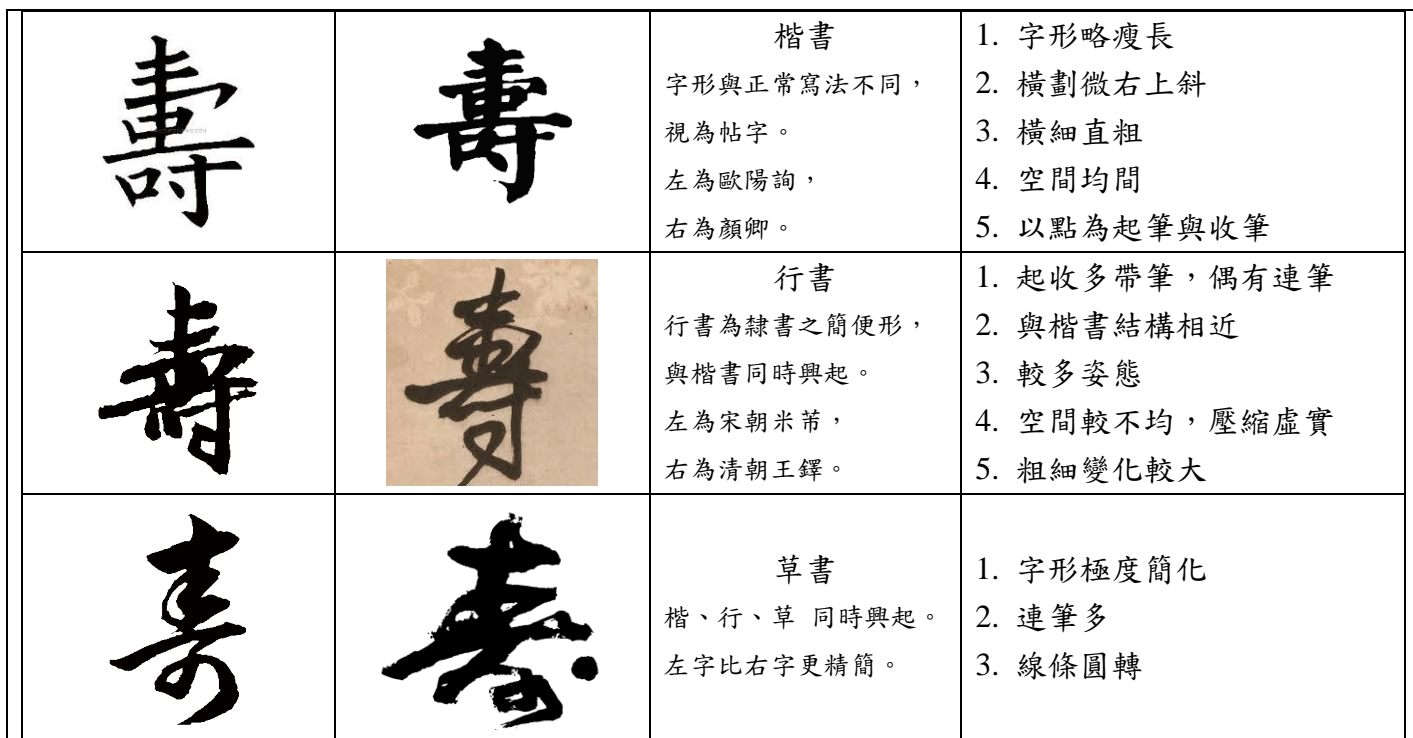 壽
壽
楷書
字形與正常寫法不同，
視為帖字。
左為歐陽詢，
右為顏卿。
1. 字形略瘦長
2. 橫劃微右上斜
3. 橫細直粗
4. 空間均間
5. 以點為起筆與收筆
壽
壽
行書
行書為隸書之簡便形，
與楷書同時興起。
左為宋朝米芾，
右為清朝王鐸。
1. 起收多帶筆，偶有連筆
2. 與楷書結構相近
3. 較多姿態
4. 空間較不均，壓縮虛實
5. 粗細變化較大
寿
寿
草書
楷、行、草 同時興起。
左字比右字更精簡。
1. 字形極度簡化
2. 連筆多
3. 線條圓轉